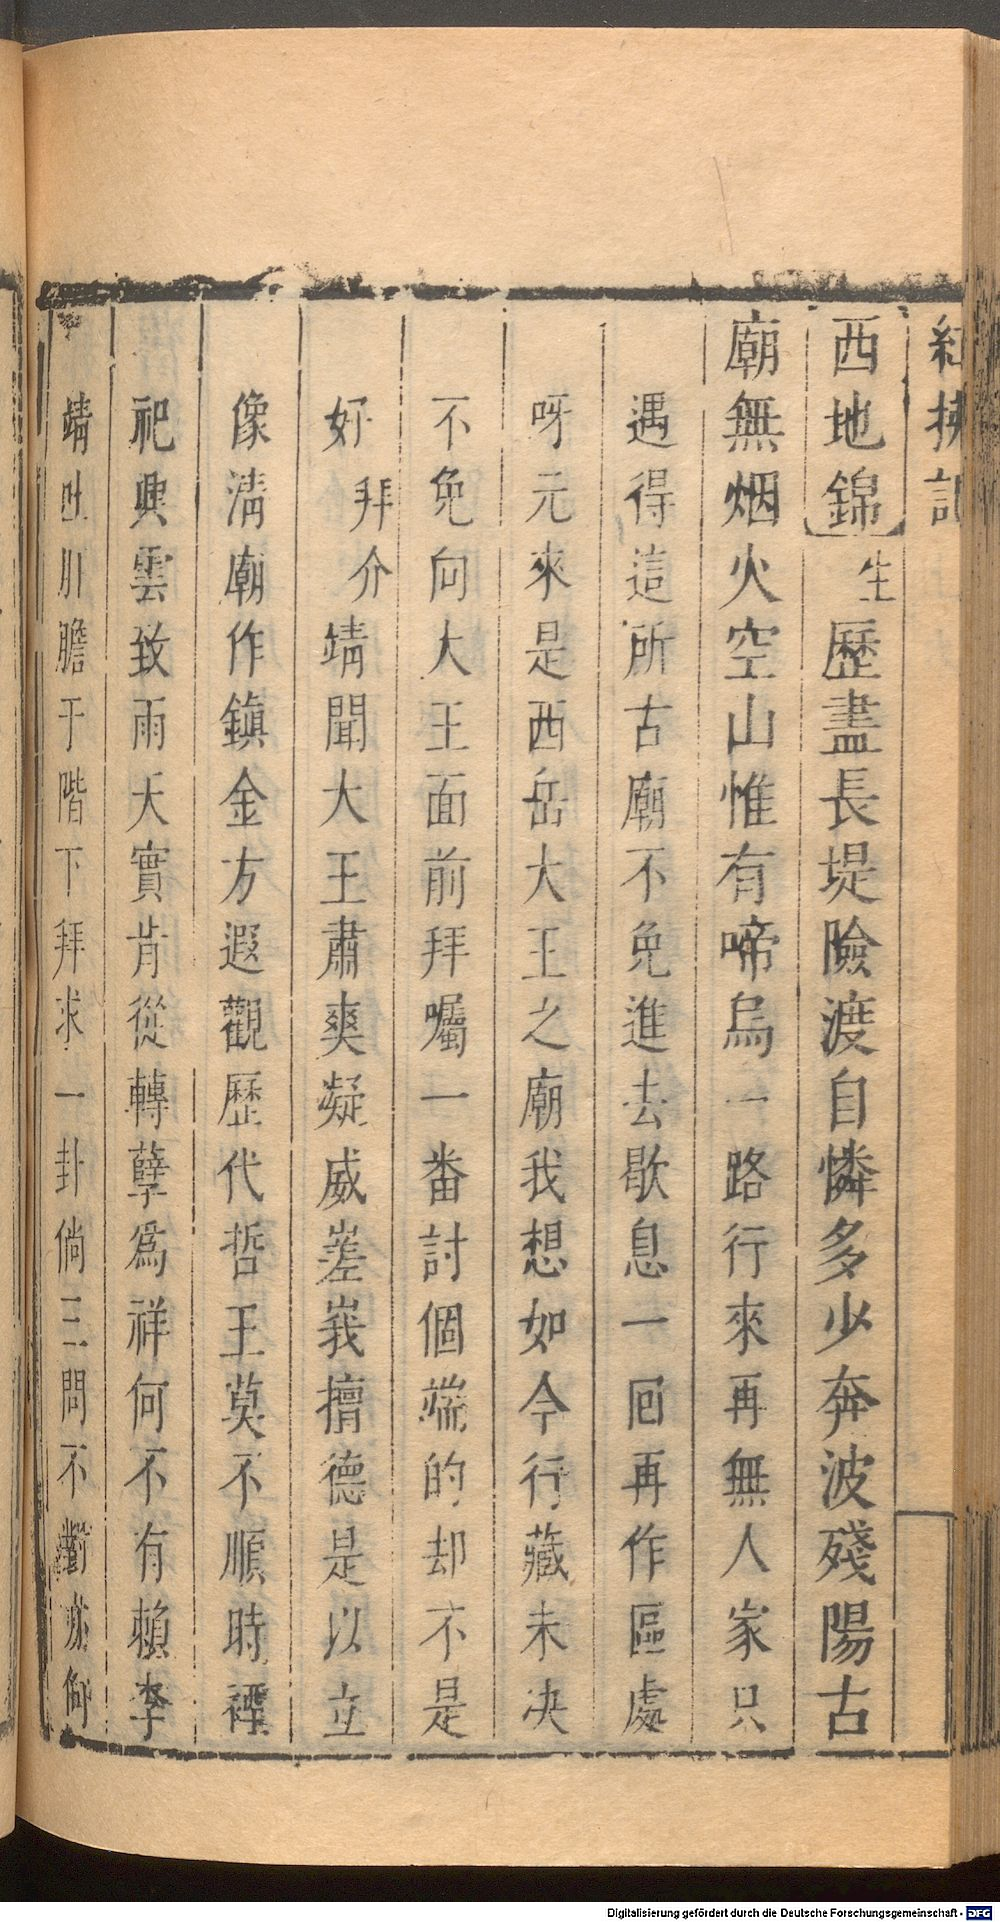 紅拂記
西地錦生歷盡長堤險渡自憐多少奔波殘陽古
廟無烟火空山惟有啼烏一路行來再無人家只
遇得這所古廟不免進去歇息一囘再作區處
呀元來是西岳大王之廟我想如今行藏未决
不免向大王面前拜囑一番討個端的却不是
好拜介靖聞大王肅爽凝威嵳峩擅德是以立
像淸廟作鎮金方遐觀歷代哲王莫不順時禋
祀興雲致雨天實肯從轉孽爲祥何不有賴李
靖吐肝膽于階下拜求一卦倘三問不對亦何
Digitalisierung gefördert durch die Deutsche Forschungsgemeinschaft - DFG